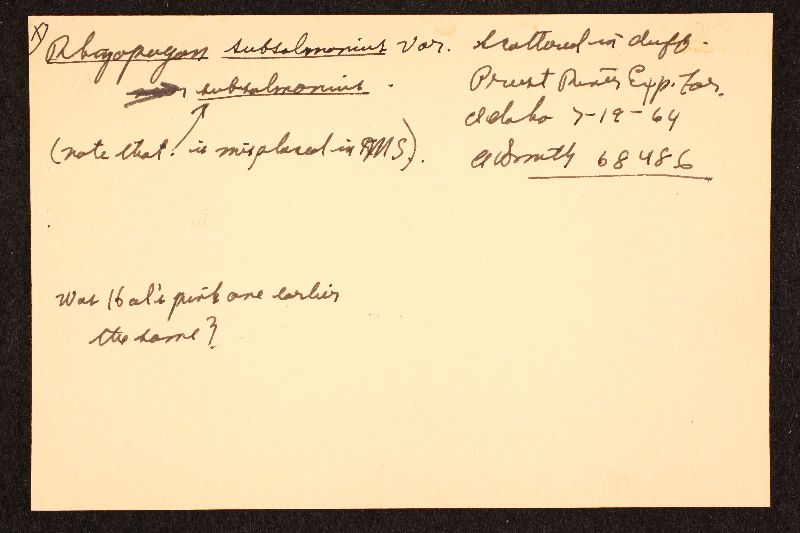 X) Rhizopogon subsalmonius var.
subsalmonius.
(note that is misplaced in AMS).
Scattered in duff.
Priest River Exp. For.
Idaho 7-19-64
AHSmith 68486
Was Hal's pink one earlier
the same?